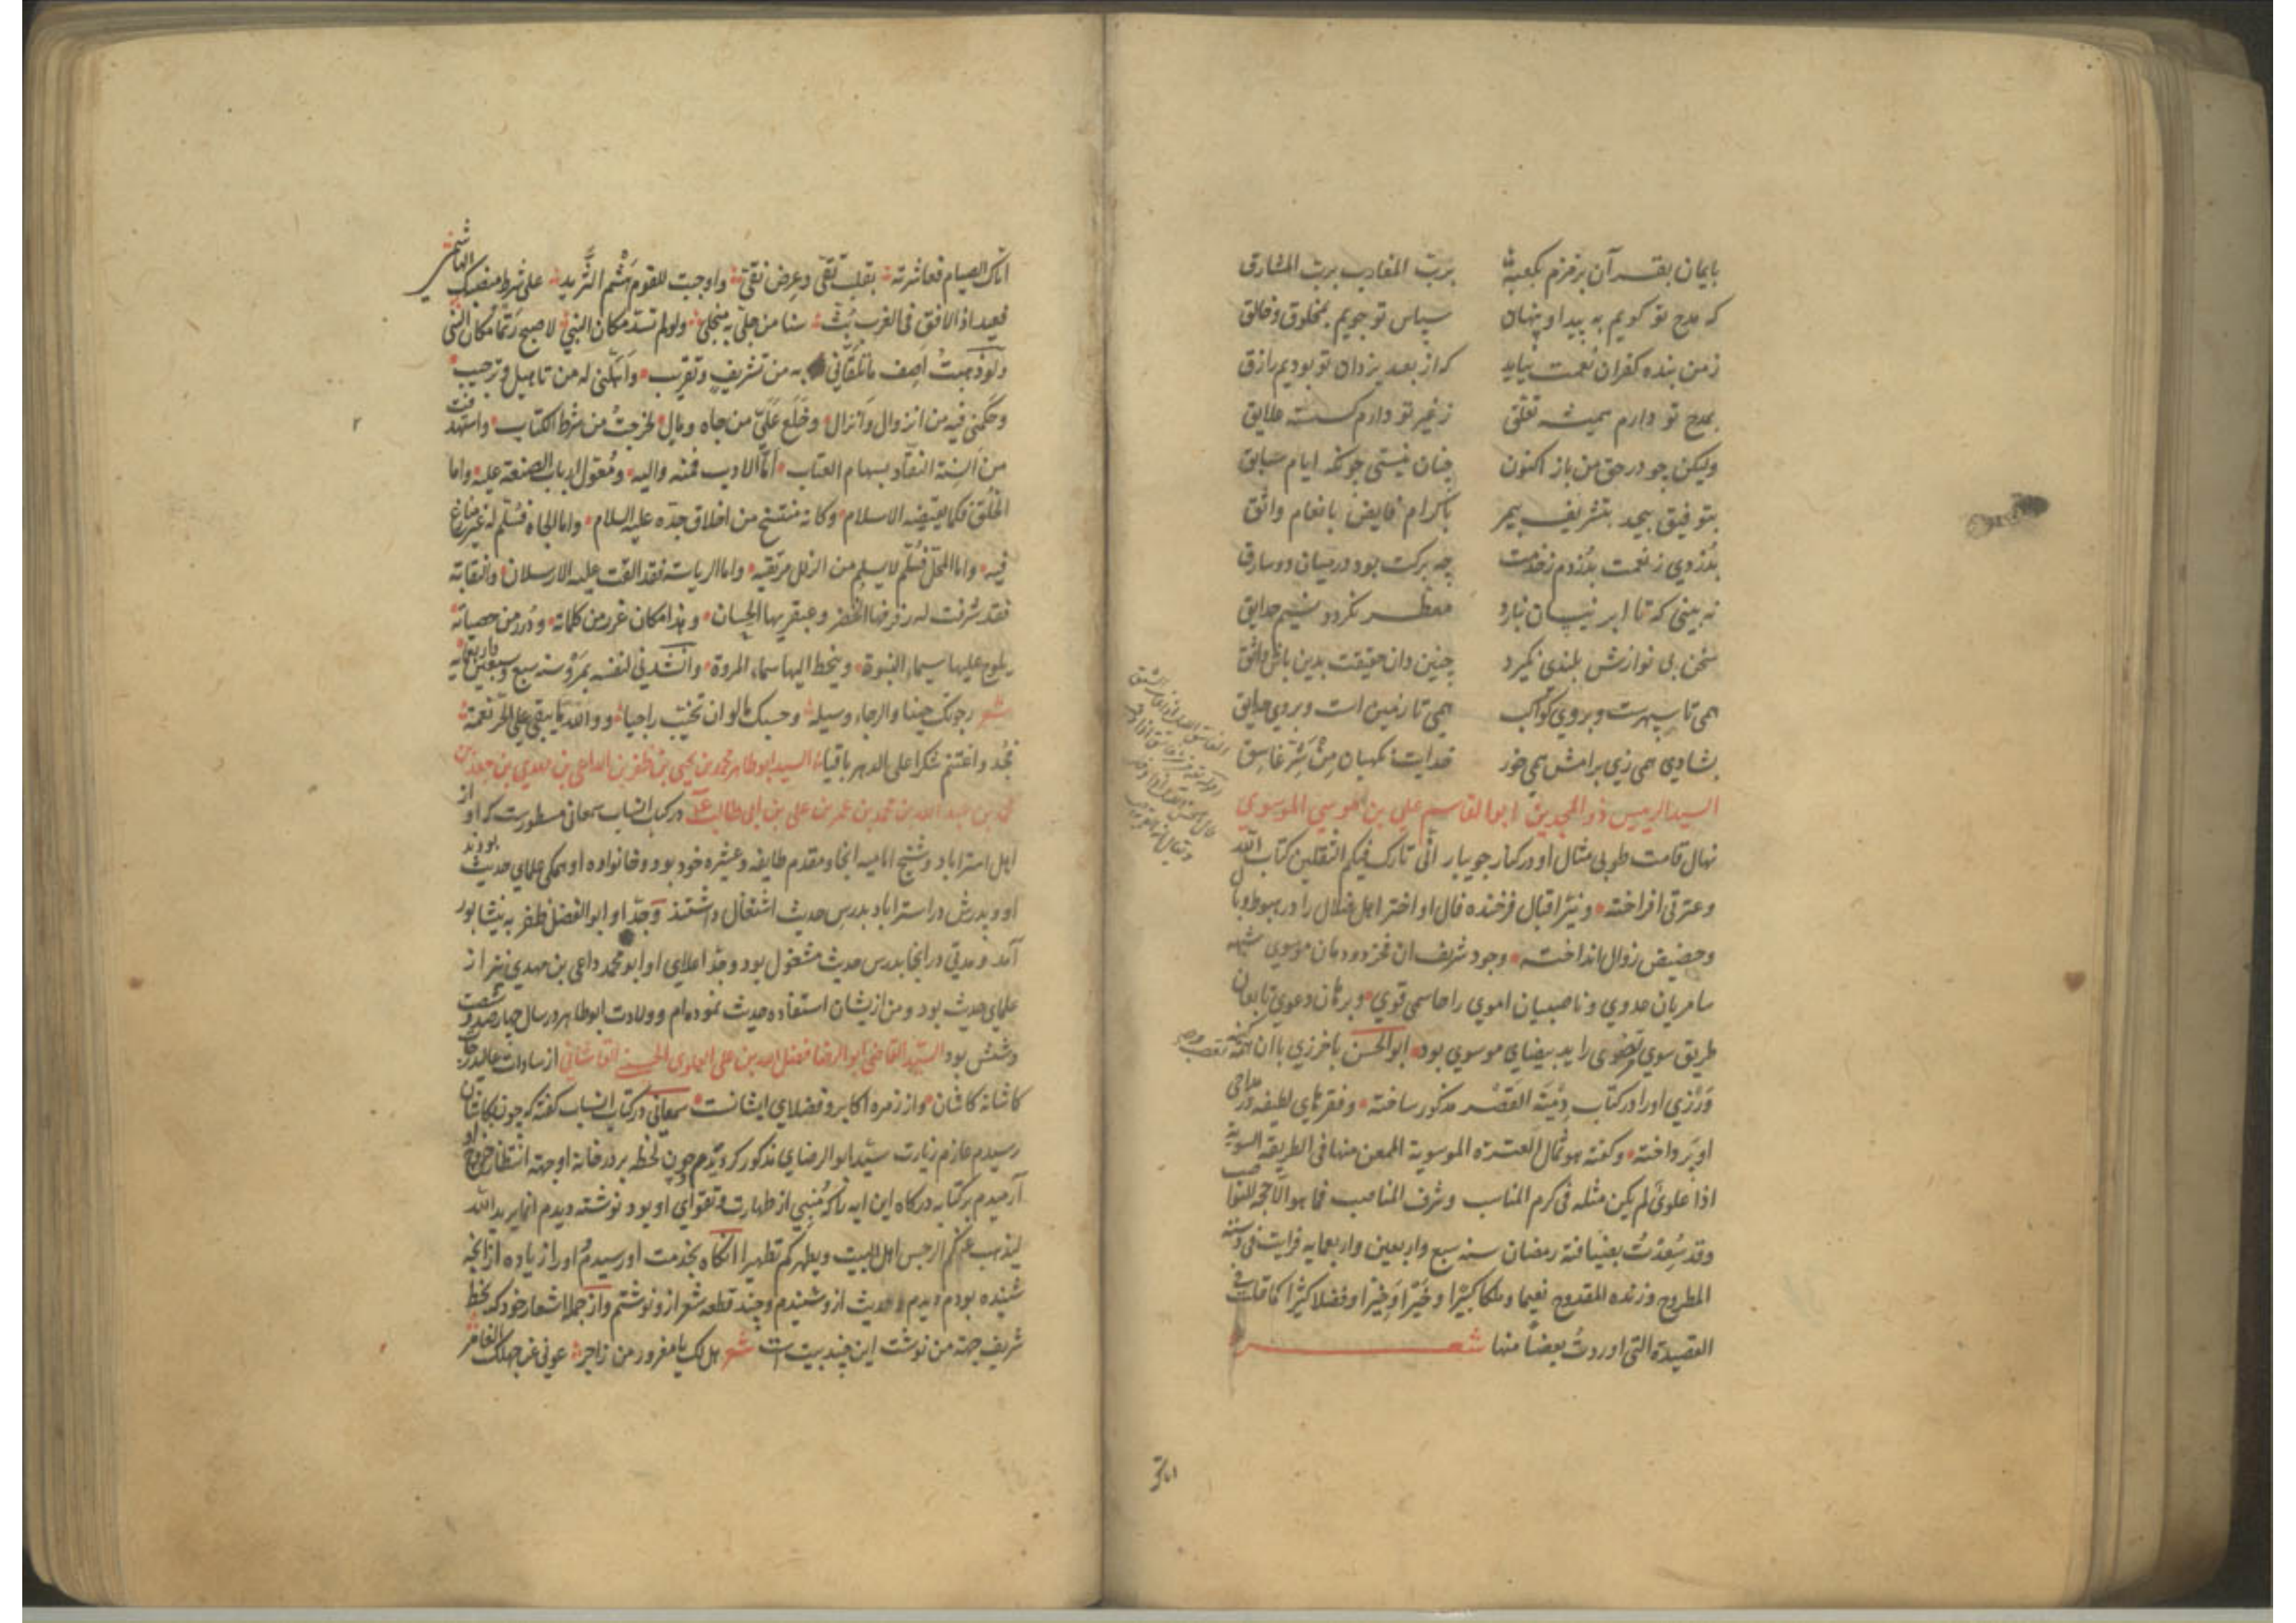 بایمان بقرآن بزمزم بکعبه برب المغارب برب المشارق
که مدح تو گویم به پیدا و پنهان سپاس تو جویم بمخلوق و خالق
ز من بنده کفران نعمت نیاید که از بعد یزدان تو بودیم رازق
بمدح تو دارم همیشه تعلق ز غیر تو دارم کسسته علایق
ولیکن چو در حق من باز اکنون چنان نیستی چونکه ایام سابق
بتوفیق بیحد بتشریف بیمر باکرام فایض بانعام واثق
بدزدی ز نعمت بدزدم ز خدمت چه برکت بود در میان دو سارق
نه بینی که تا ابر نیسان نبارد معطر نکردد نسیم حدایق
سخن بی نوازش بلندی نکیرد چنین دان حقیقت بدین باش واثق
همی تا سپهرست و بروی کواکب همی تا زمین است و بروی حدایق
بشادی همی زی برامش همی خور خدایت نکهبان من شر غاسق
السید الرئیس ذو المجدین ابو القاسم علی بن موسی الموسوی
نهال قامت طوبی مثال او در کنار جویبار انی تارک فیکم الثقلین کتاب الله
و عترتی افراخته و نیر اقبال فرخنده فال او اختر اهل ضلال را در هبوط وبال
و حضیض زوال انداخته وجود شریف ان فخر دودمان موسوی شبه
سامریان عدوی و ناصبیان اموی را حاسمی قوی و برهان دعوی تابعان
طریق سوی مرتضوی را ید بیضای موسوی بود ابو الحسن باخرزی با ان همه
ورزی او را در کتاب دمیة القصر مذکور ساخته و فقرهای لطیفه در مداحی
او پرداخته و کفته هو ثمال العترة الموسویة الممعن منها فی الطریقة السویة
اذا علوی لم یکن مثله فی کرم المناسب و شرف المناصب فما هو الا حجة للنواصب
وقد سعدت بضیافته رمضان سنه سبع واربعین واربعمایه فرایت فی دسته
المطروح وزنده المقدوح نعیما وملکا کبیرا وخیرا وخیرا وفضلا کثیرا کما قلت فی
القصیدة التی اوردت بعضا منها شعر
اتاک
اتاک الصیام فعاشرته بقلب تقی وعرض نقی واوجبت للقوم هشم الثرید علی شرط منصبک الهاشمی
فعید اذ الافق فی الغرب بث سنا من حلی به منجلی ولو لم تسد مکان النبی لاصبح ربما مکان النبی
ولو ذهبت اصف ما تلقانی به من تشریف وتقریب واهلنی له من تاهیل وترحیب
وحکمنی فیه من انزوال وانزال وخلع علی من جاه ومال لخرجت من شرط الکتاب واستهدفت
من السنة النقاد بسهام العتاب اما الادب فمنه والیه ومعول ارباب الصنعة علیه واما
الخلق فکما یقتضیه الاسلام وکانه منتسخ من اخلاق جده علیه السلام واما الجاه فمسلم له غیر منازع
فیه واما المحل فسلم لا یسلم من الزلل مرتقیه واما الریاسة فقد القت علیه الارسلان
فقد شرفت له رفرفها الخضر وعبقریها الحسان وهذا مکان غرر من کلماته ودرر من حصیاته
یلوح علیها سیماء النبوة وینحط الیها سماء المروة وانشدنی لنفسه بمرو سنه سبع وسبعین واربعمایه
شعر رجوتک حینا والرجاء وسیله وحسبک بالو ان تخیب راجیا ووالله ما یبقی علی الحر نعمة
فجد واغتنم شکرا علی الدهر باقیا السید ابو طاهر محمد بن یحیی بن ظفر بن الداعی بن مهدی بن جعفر بن
محمد بن عبد الله بن محمد بن عمر بن علی بن ابی طالب در کتاب انساب سمعانی مسطورست که او از
اهل استراباد و شیخ امامیه انجا و مقدم طایفه و عشیره خود بود و خانواده او همکی علمای حدیث بودند
او و پدرش در استراباد بدرس حدیث اشتغال داشتند و جد او ابو الفضل ظفر به نیشابور
آمد و مدتی در انجا بدرس حدیث مشغول بود و جد اعلای او ابو محمد داعی بن مهدی نیز از
علمای حدیث بود و من ازیشان استفاده حدیث نموده ام و ولادت ابو طاهر در سال چهارصد و شصت
و شش بود السید القاضی ابو الرضا فضل الله بن علی العلوی الحسنی القاشانی از سادات
کاشانه کاشان و از زمره اکابر و فضلای ایشانست سمعانی در کتاب انساب کفته که چون بکاشان
رسیدم عازم زیارت سید ابو الرضای مذکور کردیدم چون لحظه بر در خانه او جهة انتظار خروج او
آرمیدم بر کتابه درکاه این ایه را که منبی از طهارت و تقوای او بود نوشته دیدم انما یرید الله
لیذهب عنکم الرجس اهل البیت ویطهرکم تطهیرا انکاه بخدمت او رسیدم و او را زیاده از انچه
شنیده بودم دیدم و حدیث ازو شنیدم و چند قطعه شعر ازو نوشتم و از جمله اشعار خود که بخط
شریف جهة من نوشت این چند بیت است شعر هل لک یا مغرور من زاجر